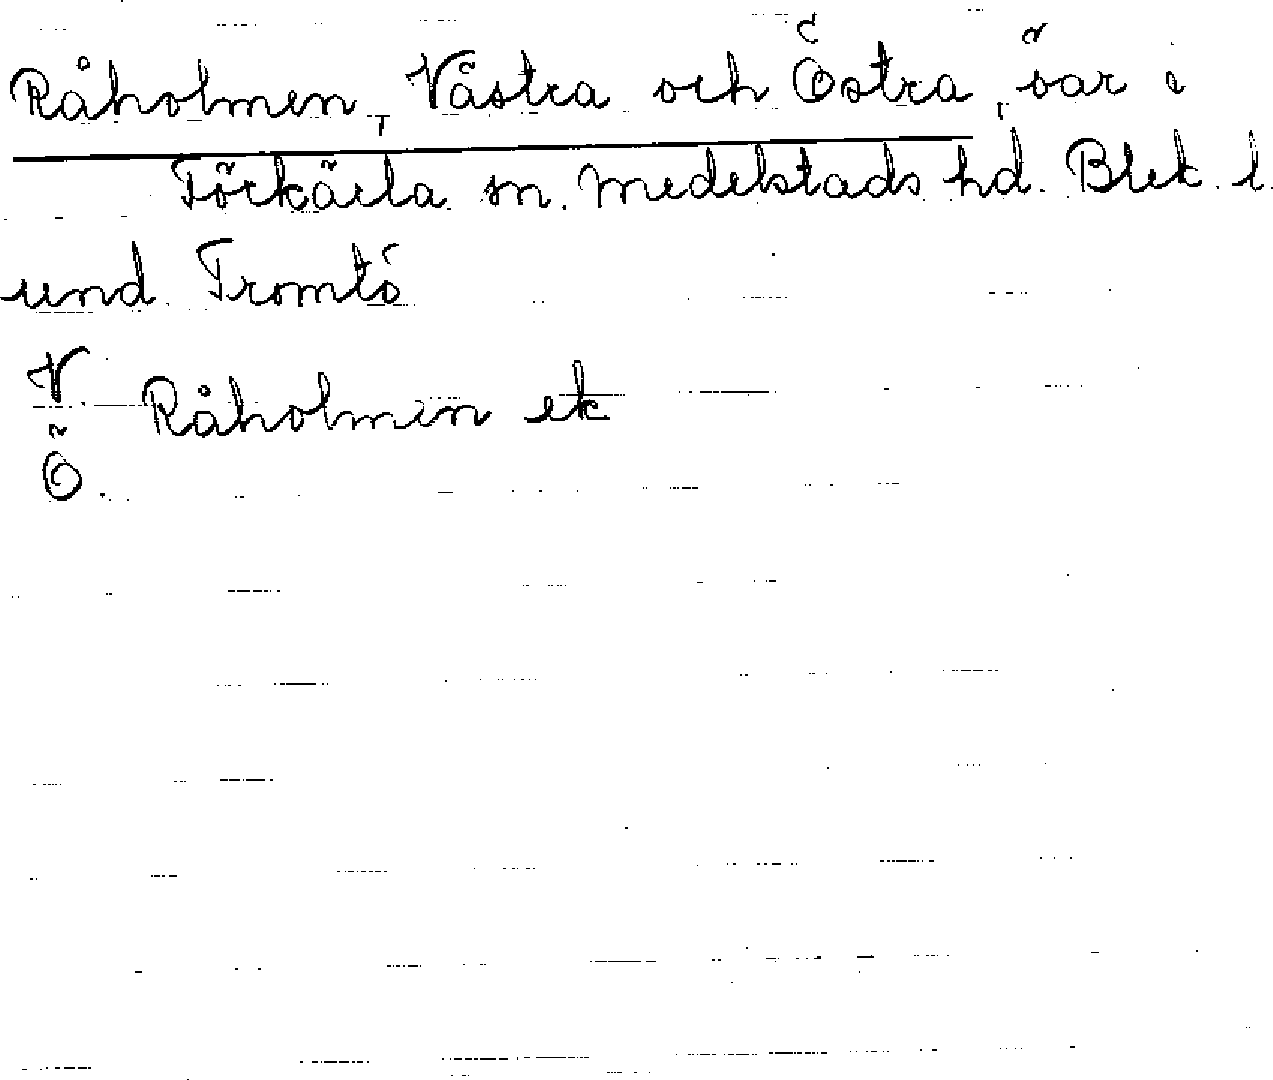 Råholmen, Västra och Östra, öar i
Förkärla sn. Medelstads hd. Blek. l.
und. Tromtö
V.
Råholmen ek
Ö.